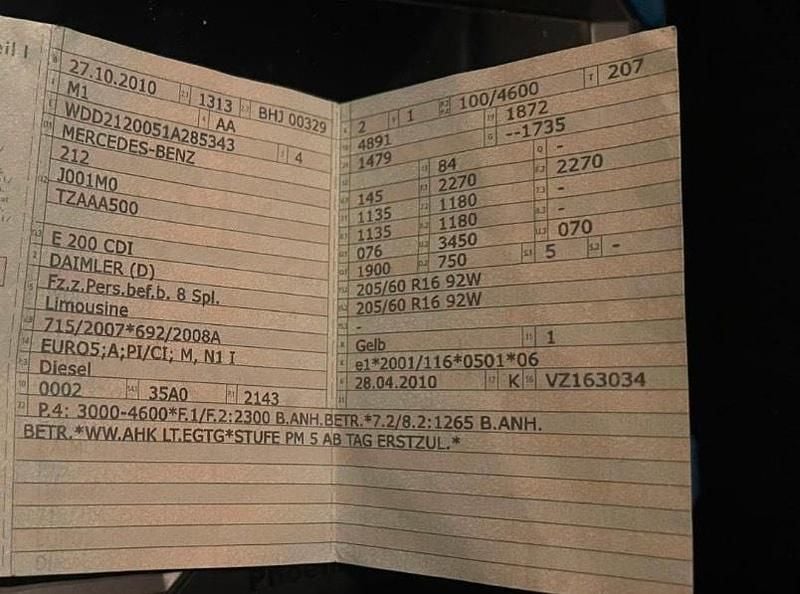 eil I
27.10.2010 1313 BHJ 00329
M1 AA
WDD2120051A285343
MERCEDES-BENZ 4
212
J001M0
TZAAA500
E 200 CDI
DAIMLER (D)
Fz.z.Pers.bef.b. 8 Spl.
Limousine
715/2007*692/2008A
EURO5;A;PI/CI; M, N1 I
Diesel
0002 35A0 2143
2 1 100/4600 207
4891 1872
1479 --1735
84 -
145 2270 2270
1135 1180 -
1135 1180 -
076 3450 070
1900 750 5 -
205/60 R16 92W
205/60 R16 92W
-
Gelb 1
e1*2001/116*0501*06
28.04.2010 K VZ163034
P.4: 3000-4600*F.1/F.2:2300 B.ANH.BETR.*7.2/8.2:1265 B.ANH.
BETR.*WW.AHK LT.EGTG*STUFE PM 5 AB TAG ERSTZUL.*